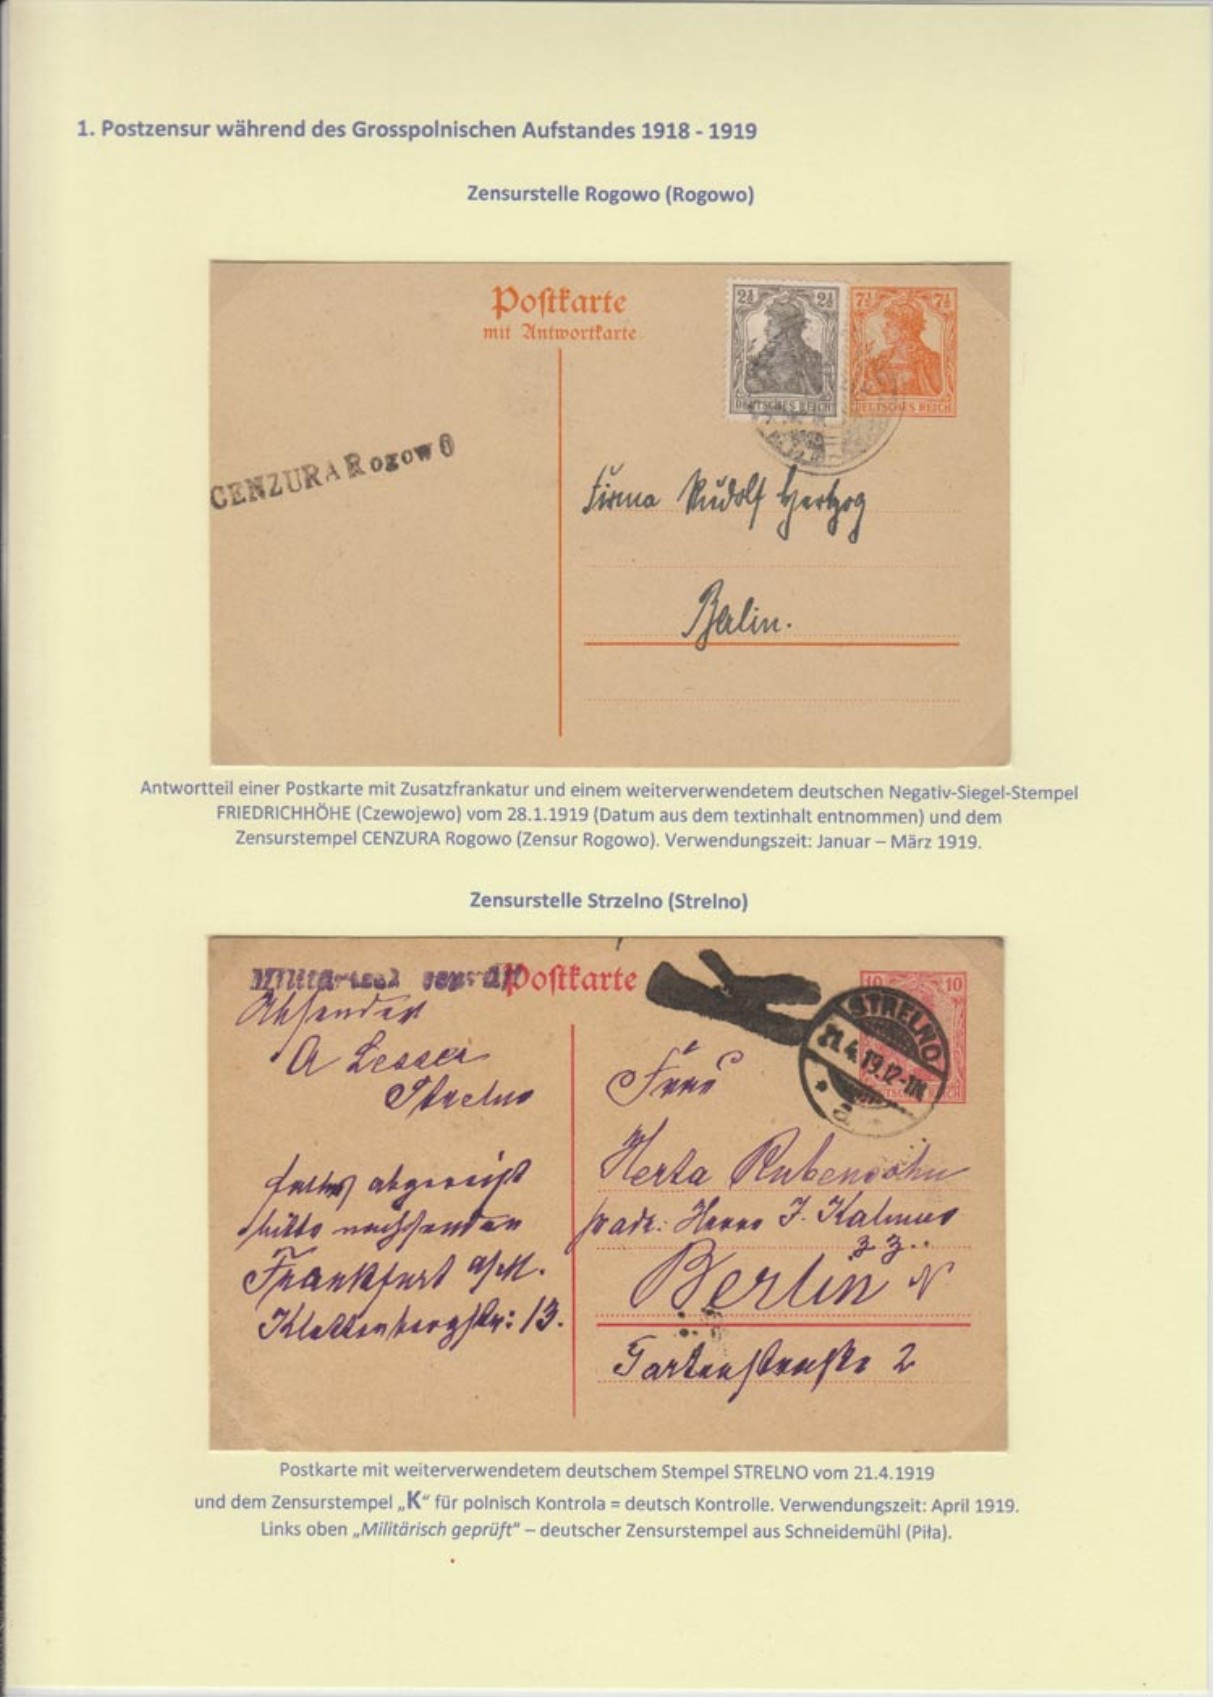 1. Postzensur während des Grosspolnischen Aufstandes 1918 - 1919
Zensurstelle Rogowo (Rogowo)
Postkarte
mit Antwortkarte
2½ 2½
7½ 7½
DEUTSCHES REICH
DEUTSCHES REICH
CENZURA Rogowo
Firma Rudolf Hertzog
Berlin.
Antwortteil einer Postkarte mit Zusatzfrankatur und einem weiterverwendetem deutschen Negativ-Siegel-Stempel
FRIEDRICHHÖHE (Czewojewo) vom 28.1.1919 (Datum aus dem textinhalt entnommen) und dem
Zensurstempel CENZURA Rogowo (Zensur Rogowo). Verwendungszeit: Januar – März 1919.
Zensurstelle Strzelno (Strelno)
Militärisch geprüft
Postkarte
10 10
STRELNO
21.4.19.12-1N
a
Absender
A Lesser
Strelno
falls abgereist
bitte nachsenden
Frankfurt a/M.
Klettenbergstr: 13.
Frau
Herta Rubensohn
p adr: Herrn J. Kalmus
z. Z..
Berlin N
Gartenstraße 2
Postkarte mit weiterverwendetem deutschem Stempel STRELNO vom 21.4.1919
und dem Zensurstempel „K“ für polnisch Kontrola = deutsch Kontrolle. Verwendungszeit: April 1919.
Links oben „Militärisch geprüft“ – deutscher Zensurstempel aus Schneidemühl (Piła).